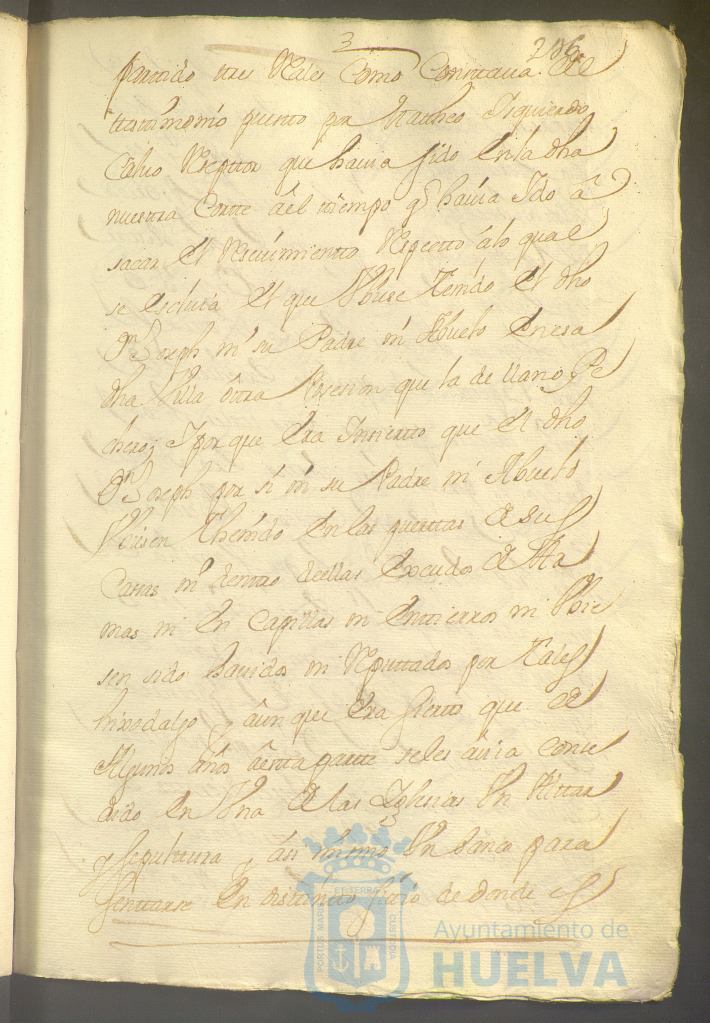 3 206
partido tres Reales Como Constava del
testimonio puesto por Matheo Izquierdo
Calvo Rezeptor que havia sido En la dha
nuestra Corte del tiempo q havia Ido â
sacar El Reciuimientto Respectto âlo qual
se escluia El que Vbiese Tenido El dho
Dn Joseph ni su Padre ni Abuelo En esa
dha Villa ôtra Posesion que la de llano, Pe
chero; I por que Era Inzierto que El dho
Dn Joseph por si ni su Padre ni Abuelo
Vbiesen thenido En las puerttas de sus
Casas ni dentro de ellas Escudos de Ar
mas ni En Capillas ni Enttierros ni Vbie
sen sido havidos ni Reputtados por Tales
hixodalgo y âunque Era Zierto que de
Algunos años âesta partte se les âvia conce
dido En Una de las Iglesias Un Alttar
y sepulttura y âsi mismo Un banco para
senttarse En distintto sitio de donde es
PORTUS MARIS ET TERRAE CUSTODIA
Ayuntamiento de
HUELVA